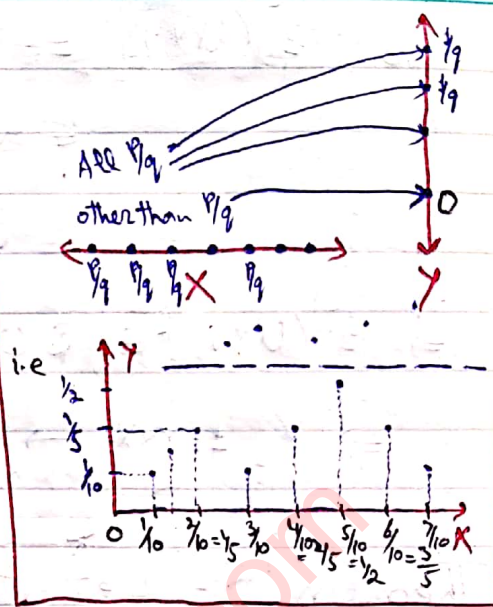 1/q
1/q
All P/q
other than P/q
0
P/q P/q P/q X P/q
Y
i.e
Y
1/2
1/5
1/10
0 1/10 2/10 = 1/5 3/10 4/10 = 2/5 5/10 = 1/2 6/10 = 3/5 7/10 X
om